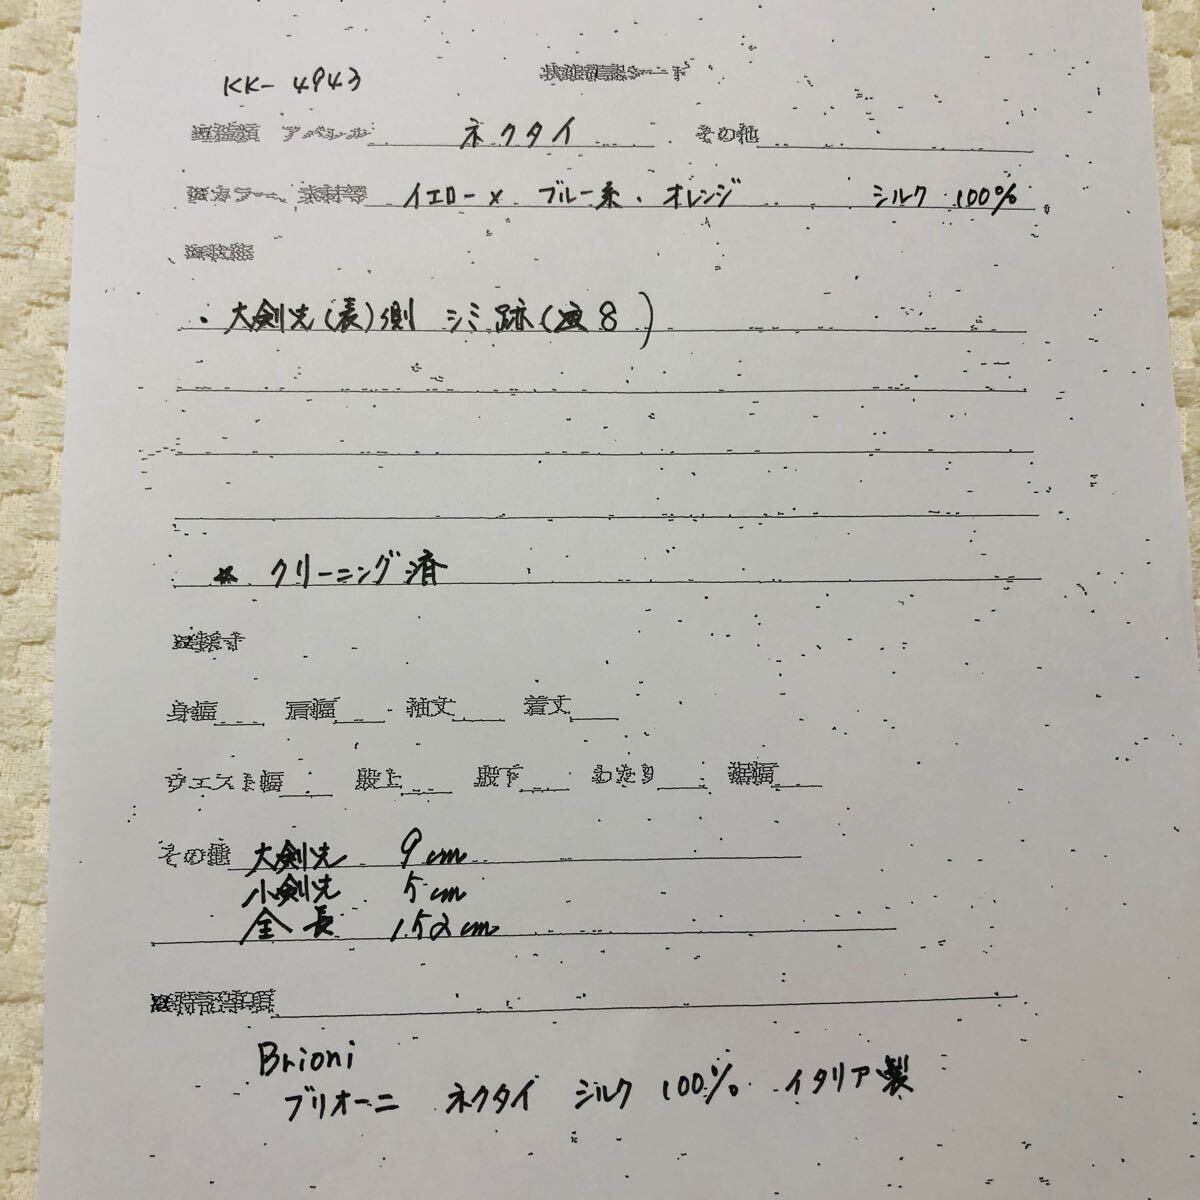 KK-4943
状態確認シート
アパレル ネクタイ その他
カラー、素材等 イエロー× ブルー系・オレンジ シルク 100%
・大剣先(表)側 シミ跡(
* クリーニング済
身幅 肩幅 袖丈 着丈
ウエスト幅 股上 股下 わたり 裾幅
その他 大剣先 9cm
小剣先 5cm
全長 152cm
特記事項
Brioni
ブリオーニ ネクタイ シルク 100% イタリア製